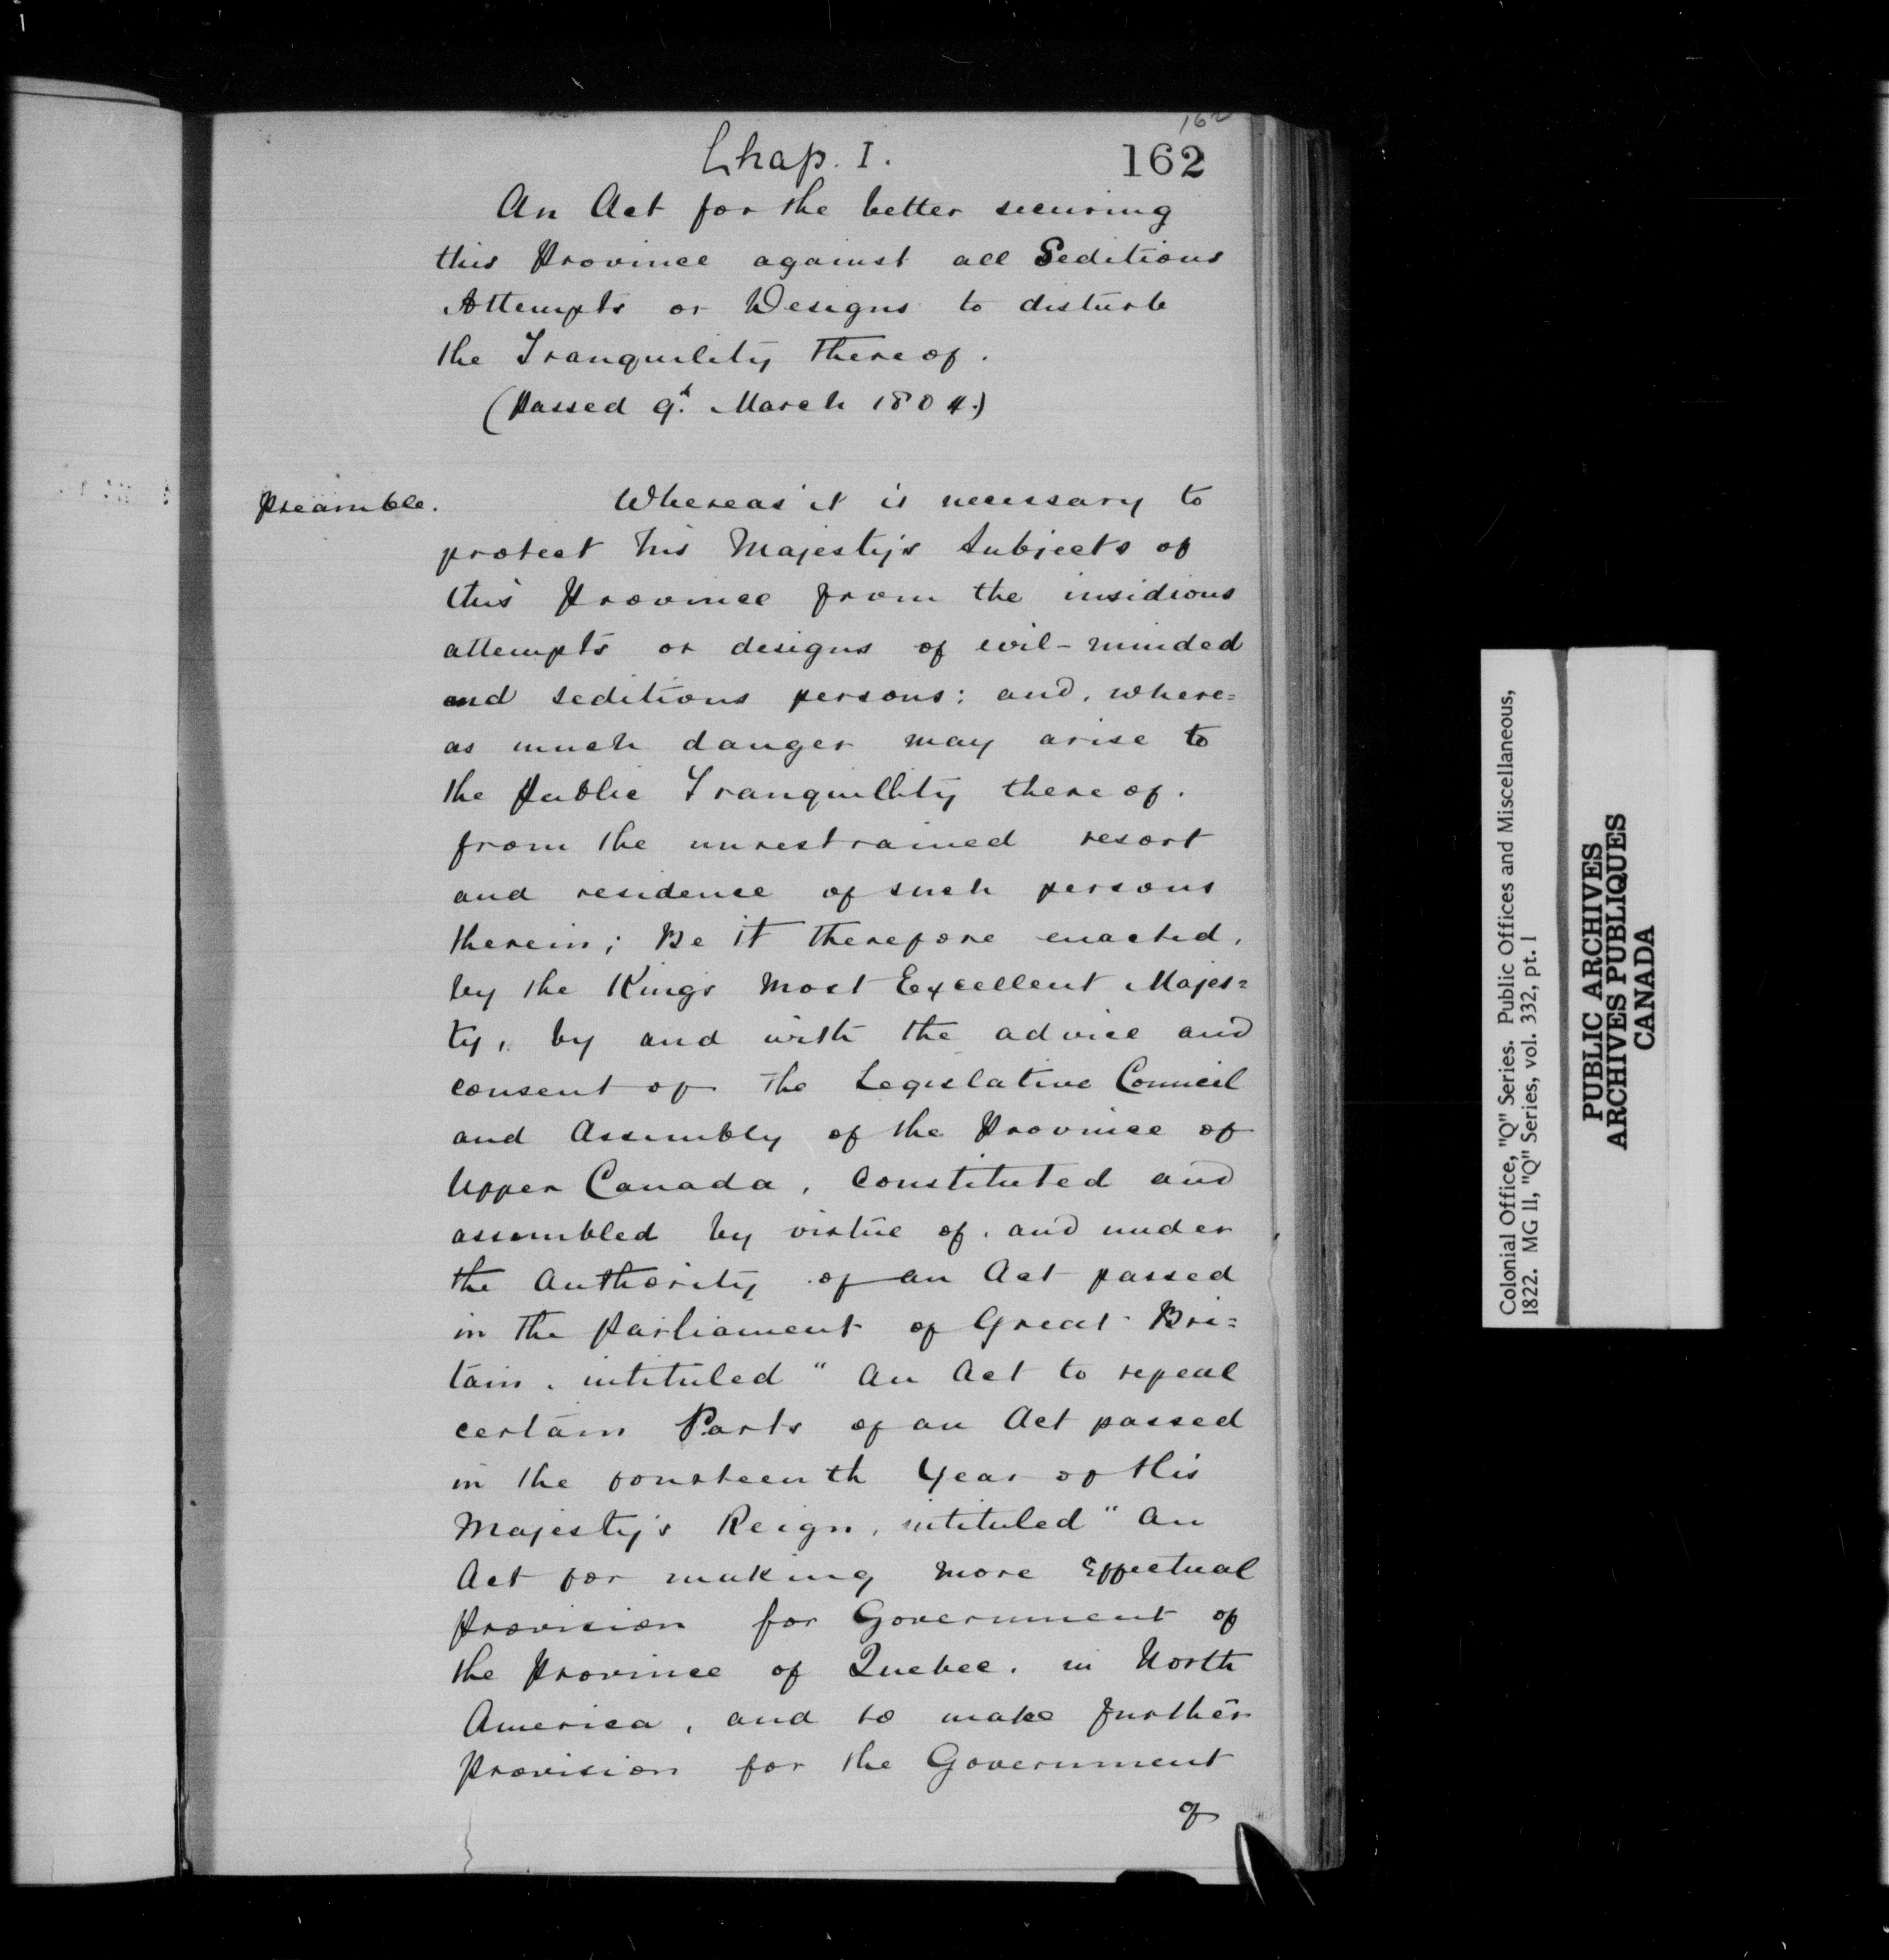 162
Chap. I.
162
An Act for the better securing
this Province against all Seditious
Attempts or Designs to disturb
the Tranquility thereof.
(Passed 9th March 1804.)
Preamble.
Whereas it is necessary to
protect his Majesty's Subjects of
this Province from the insidious
attempts or designs of evil-minded
and seditious persons: and, where=
as much danger may arise to
the Public Tranquillity thereof.
from the unrestrained resort
and residence of such persons
therein; Be it therefore enacted,
by the Kings Most Excellent Majes=
ty, by and with the advice and
consent of the Legislative Council
and Assembly of the Province of
Upper Canada, constituted and
assembled by virtue of, and under
the Authority of an Act passed
in the Parliament of Great Bri=
tain, intituled "An Act to repeal
certain Parts of an Act passed
in the fourteenth Year of His
Majesty's Reign, intituled "An
Act for making more Effectual
Provision for Government of
the Province of Quebec, in North
America, and to make further
Provision for the Government
of
Colonial Office, "Q" Series. Public Offices and Miscellaneous,
1822. MG 11, "Q" Series, vol. 332, pt. 1
PUBLIC ARCHIVES
ARCHIVES PUBLIQUES
CANADA